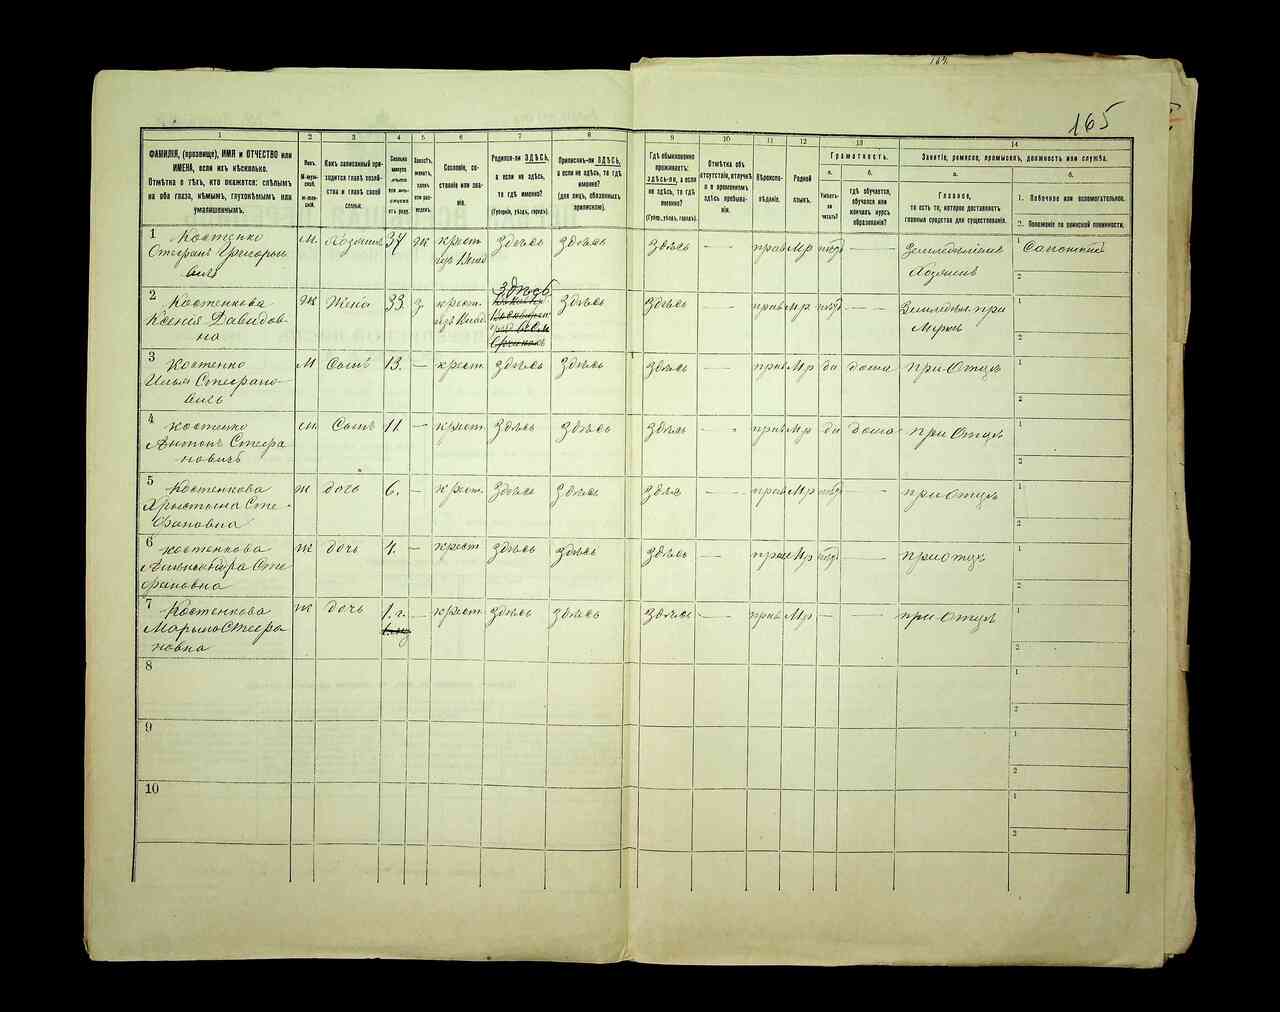 165
1 2 3 4 5 6 7 8 9 10 11 12 13 14
ФАМИЛІЯ, (прозвище), ИМЯ и ОТЧЕСТВО или
ИМЕНА, если ихъ нѣсколько.
Отмѣтка о тѣхъ, кто окажется: слѣпымъ
на оба глаза, нѣмымъ, глухонѣмымъ или
умалишеннымъ.
Полъ.
М-муж-
ской.
Ж-жен-
скій.
Какъ записанный при-
ходится главѣ хозяй-
ства и главѣ своей
семьи.
Сословіе, со-
стояніе или зва-
ніе.
Родился-ли ЗДѢСЬ,
а если не здѣсь,
то гдѣ именно?
(Губернія, уѣздъ, городъ).
Приписанъ-ли ЗДѢСЬ,
а если не здѣсь, то гдѣ
именно?
(для лицъ, обязанныхъ
припискою).
Гдѣ обыкновенно
проживаетъ:
здѣсь-ли, а если
не здѣсь, то гдѣ
именно?
(Губерн., уѣздъ, городъ).
Отмѣтка объ
отсутствіи, отлучкѣ
и о временномъ
здѣсь пребыва-
ніи.
Вѣроиспо-
вѣданіе.
Родной
языкъ.
Грамотность.
а.
Умѣетъ-
ли
читать?
б.
гдѣ обучается,
обучался или
кончилъ курсъ
образованія?
Занятіе, ремесло, промыселъ, должность или служба.
а.
Главное,
то есть то, которое доставляетъ
главныя средства для существованія.
б.
1. Побочное или вспомогательное.
2. Положеніе по воинской повинности.
1 Костенко м. Хозяинъ 37 ж крест. здѣсь здѣсь здѣсь — — прав Мр — Земледѣлецъ 1 Сапожникъ
Стефанъ Григорье- Хозяинъ
вичъ 2
2 Костенкова ж Жена 33. з. крест. здѣсь здѣсь здѣсь — — прав Мр — — Земледѣл. при 1
Ксенія Давидов- Мужѣ
на 2
3 Костенко М Сынъ 13. — крест. здѣсь здѣсь здѣсь — — прав Мр да дома при Отцѣ 1
Илья Стефано-
вичъ 2
4 Костенко м. Сынъ 11 — крест. здѣсь здѣсь здѣсь — — прав Мр да дома при Отцѣ 1
Антонъ Стефа
новичъ 2
5 Костенкова ж дочь 6. — крест. здѣсь здѣсь здѣсь — — прав Мр — при Отцѣ 1
Христина Сте-
фановна 2
6 Костенкова ж дочь 4. — крест здѣсь здѣсь здѣсь — — прав Мр — при отцѣ 1
Александра Сте
фановна 2
7 Костенкова ж дочь 1. г. — крест здѣсь здѣсь здѣсь — — прав Мр — — при Отцѣ 1
Стефа
новна 2
8 1
2
9 1
2
10 1
2